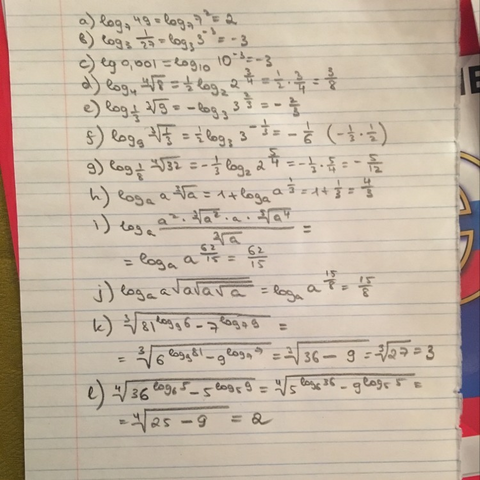 a) log₇ 49 = log₇ 7² = 2
b) log₃ 1/27 = log₃ 3⁻³ = -3
c) lg 0,001 = log₁₀ 10⁻³ = -3
d) log₄ ∜8 = 1/2 log₂ 2^(3/4) = 1/2 · 3/4 = 3/8
e) log_(1/3) ∛9 = -log₃ 3^(2/3) = -2/3
f) log₉ ∛(1/3) = 1/2 log₃ 3^(-1/3) = -1/6 (-1/3 · 1/2)
g) log_(1/8) ∜32 = -1/3 log₂ 2^(5/4) = -1/3 · 5/4 = -5/12
h) logₐ a ∛a = 1 + logₐ a^(1/3) = 1 + 1/3 = 4/3
i) logₐ (a² · ∛(a²) · a · ⁵√(a⁴)) / ∛a =
= logₐ a^(62/15) = 62/15
j) logₐ a√(a√(a√a)) = logₐ a^(15/8) = 15/8
k) ∛(81^(log₉ 6) - 7^(log₇ 9)) =
= ∛(6^(log₉ 81) - 9^(log₇ 7)) = ∛(36 - 9) = ∛27 = 3
l) ∜(36^(log₆ 5) - 5^(log₅ 9)) = ∜(5^(log₆ 36) - 9^(log₅ 5)) =
= ∜(25 - 9) = 2